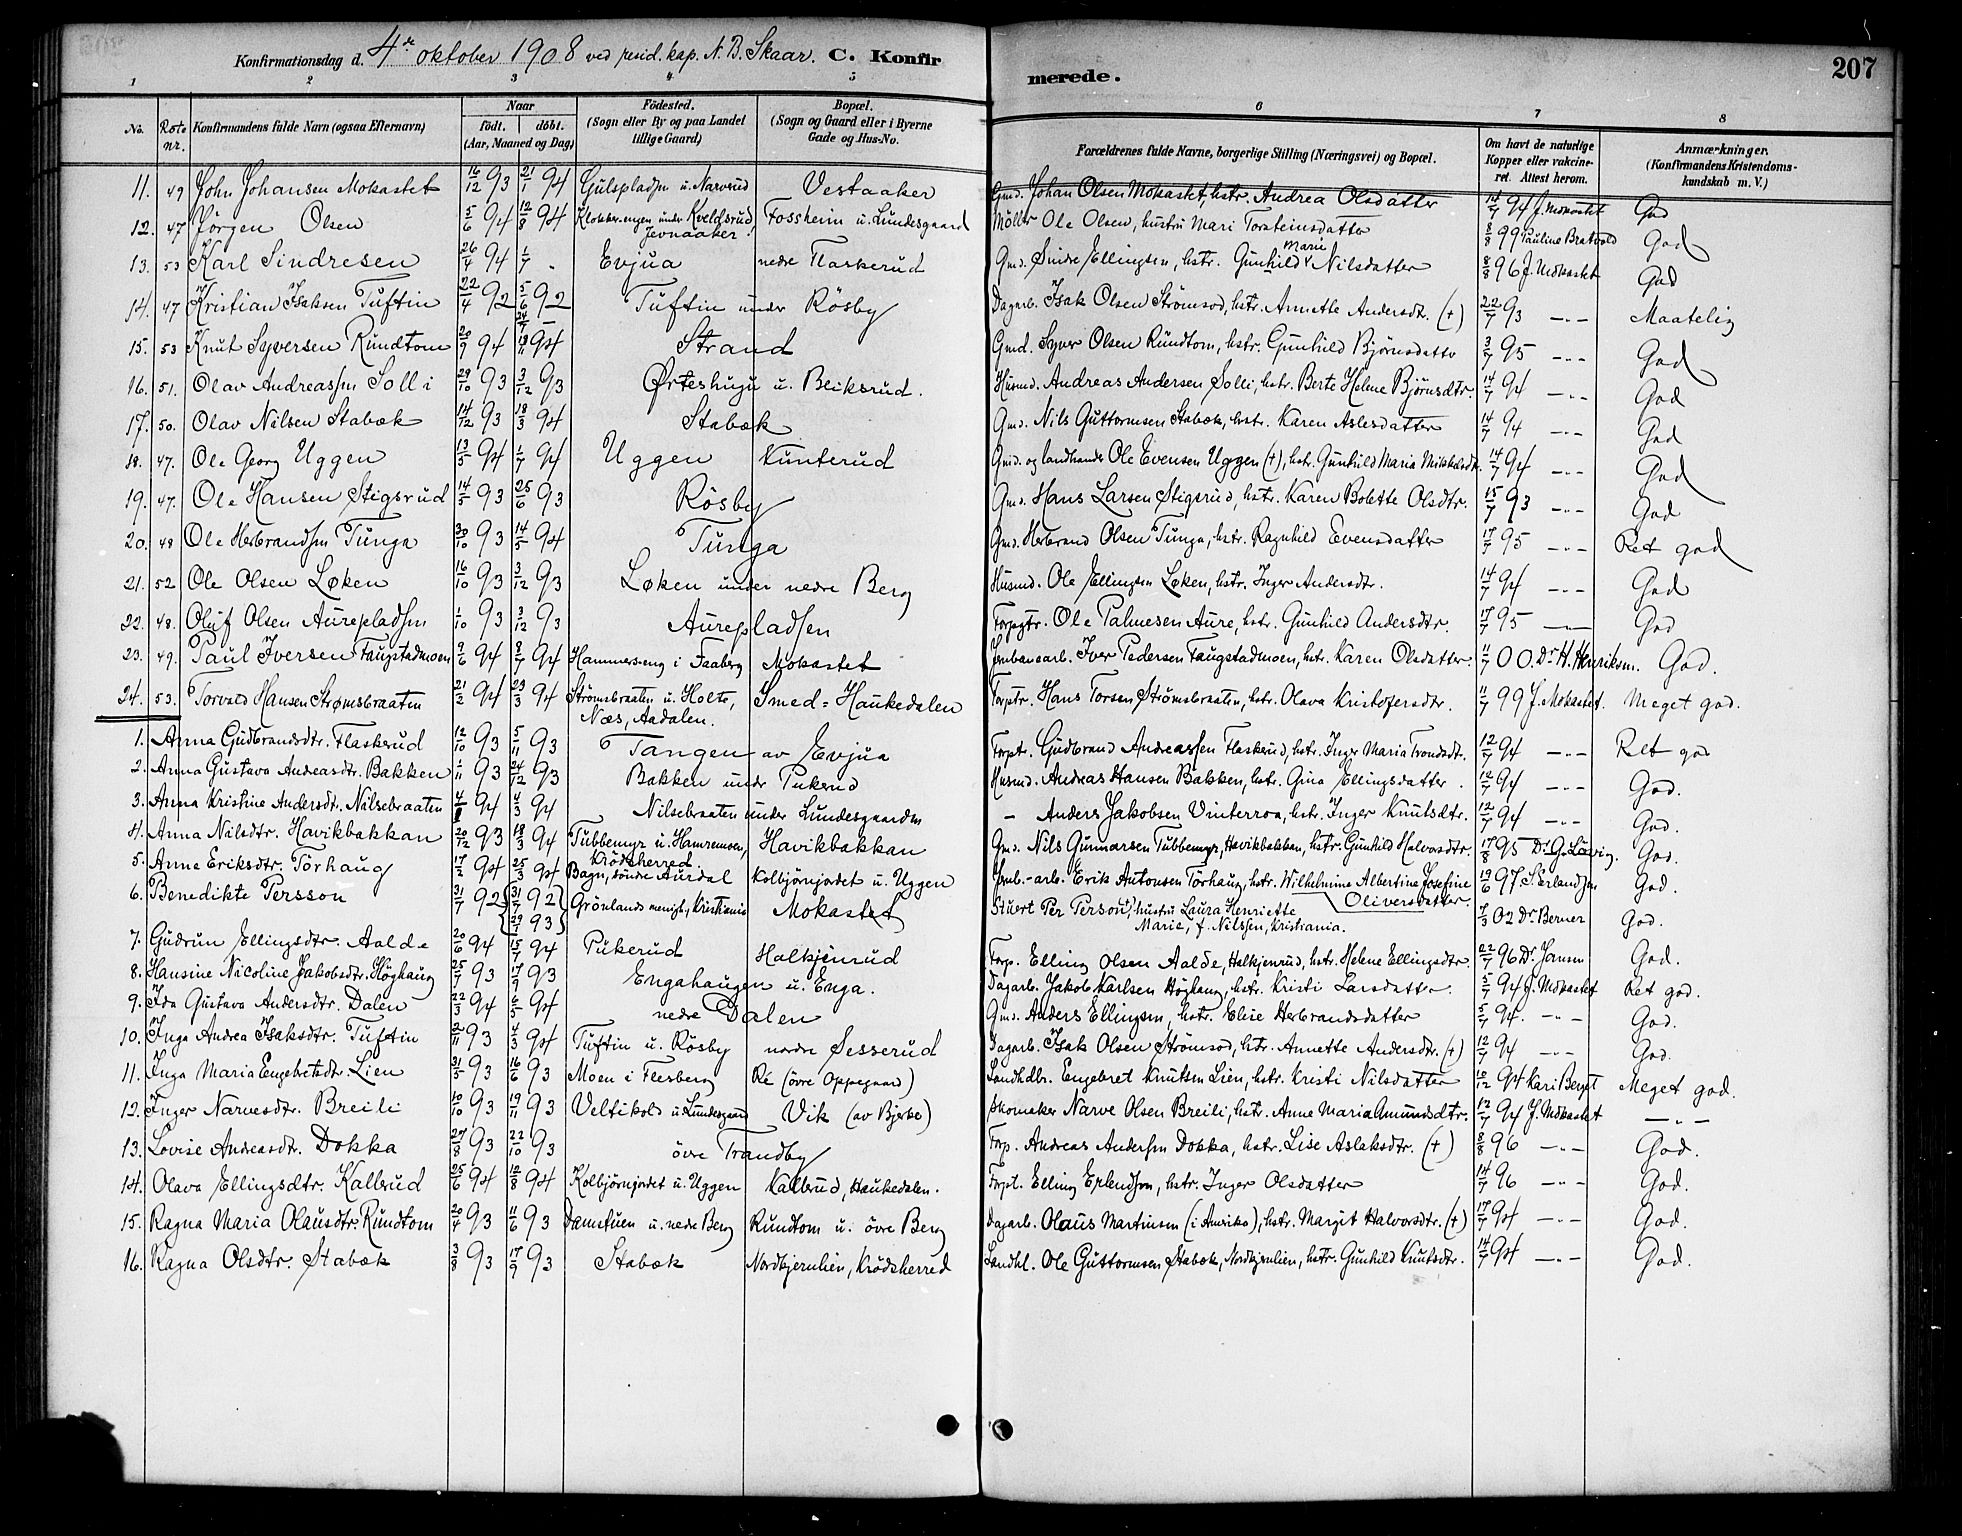 Konfirmationsdag d. 4de oktober 1908 ved resid. kap. N. B. Skaar. C. Konfir merede. 207
1 2 3 4 5 6 7 8
No. Rote nr. Konfirmandens fulde Navn (ogsaa Efternavn) Naar födt. döbt. (Aar, Maaned og Dag) Födested. (Sogn eller By og paa Landet tillige Gaard) Bopæl. (Sogn og Gaard eller i Byerne Gade og Hus-No. Forældrenes fulde Navne, borgerlige Stilling (Næringsvei) og Bopæl. Om havt de naturlige Kopper eller vakcineret. Attest herom. Anmærkninger. (Konfirmandens Kristendomskundskab m. V.)
11. 49 John Johansen Mokastet 16/12 93 21/1 94 Gulspladsen u. Narverud Vestaaker Gmd. Johan Olsen Mokastet, hstr. Andrea Olsdatter 14/7 94 J. Mokastet God
12. 47 Jörgen Olsen 5/6 94 12/8 94 Klokkerengen under Kveldsrud Jevnaaker! Fossheim u. Lundesgaard Möller Ole Olsen, hustru Mari Torsteinsdatter 8/8 99 Pauline Bratvold God
13. 53 Karl Sindresen 26/4 94 1/7 - Evjua nedre Flaskerud Gmd. Sindre Ellingsen, hstr. Gunhild Marie Nilsdatter 8/8 96 J. Mokastet God
14. 47 Kristian Isaksen Tuftin 22/4 92 5/6 92 24/7 - Tuftin under Rösby Dagarb. Isak Olsen Strömsod, hstr. Annette Andersdt. (+) 22/7 93 -"- Maatelig
15. 53 Knut Syversen Rundtom 20/9 94 18/11 94 Strand Gmd. Syver Olsen Rundtom, hstr. Gunhild Björnsdatter 3/7 95 -"- God
16. 51. Olav Andreassen Solli 29/10 93 3/12 93 Ørteshugu u. Bleiksrud. Husmd. Andreas Andersen Solli, hstr. Berte Helene Björnsdtr. 14/7 94 -"- God
17. 50. Olav Nilsen Stabæk 14/12 93 18/3 94 Stabæk Gmd. Nils Guttormsen Stabæk, hstr. Karen Aslesdatter 14/7 94 -"- God
18. 47. Ole Georg Uggen 13/5 94 1/7 94 Uggen Kunterud Gmd. og landhandl. Ole Evensen Uggen (+), hstr. Gunhild Maria Mikkelsdt. 14/7 94 -"- God
19. 47. Ole Hansen Stigsrud 14/5 93 25/6 93 Rösby Gmd. Hans Larsen Stigsrud, hstr. Karen Bolette Olsdtr. 15/7 93 -"- God
20. 48 Ole Herbrandsen Tunga 30/10 93 14/5 94 Tunga Gmd. Herbrand Olsen Tunga, hstr. Ragnhild Evensdatter 17/7 95 -"- Ret god
21. 52 Ole Olsen Løken 16/10 93 3/12 93 Løken under nedre Berg Husmd. Ole Ellingsen Løken, hstr. Inger Andersdtr. 14/7 94 -"- God
22. 48. Oluf Olsen Aurepladsen 1/10 93 3/12 93 Aurepladsen Forpgtr. Ole Palmesen Aure, hstr. Gunhild Andersdtr. 17/7 95 -"- God
23. 49. Paul Iversen Faugstadmoen 9/6 94 8/7 94 Hammerseng i Faaberg Mokastet Jernbanearb. Iver Pedersen Faugstadmoen, hstr. Karen Olsdatter. 11/7 00. Dr. H. Henriksen. God.
24. 53. Torvald Hansen Strømsbraaten 21/2 94 23/3 94 Strömsbraaten u. Holte, Næs, Aadalen. Smed-Haukedalen Forptr. Hans Torsen Strömsbraaten, hstr. Olava Kristofersdtr. 11/7 99 J. Mokastet. Meget god.
1. Anna Gudbrandsdtr. Flaskerud 12/10 93 5/11 93 Tangen av Evjua Forptr. Gudbrand Andreassen Flaskerud, hstr. Inger Maria Trondsdt. 12/7 94 -"- Ret god
2. Anna Gustava Andreasdtr. Bakken 1/11 93 24/12 93 Bakken under Pukerud Husmd. Andreas Hansen Bakken, hstr. Gina Ellingsdatter. 12/7 94 -"- God.
3. Anna Kristine Andersdtr. Nilsebraaten 4/1 94 4/3 94 Nilsebraaten under Lundesgaarden - Anders Jakobsen Vinterroa, hstr. Inger Knutsdtr. 12/7 94 -"- God.
4. Anna Nilsdtr. Havikbakkan 20/12 93 18/3 94 Tubbemyr u. Hamremoen, Krödsherred. Havikbakkan Gmd. Nils Gunnarsen Tubbemyr, Havikbakkan, hstr. Gunhild Halvorsdtr. 17/8 95 Dr. G. Lövig. God.
5. Anne Eriksdtr. Törhaug 17/2 94 25/3 94 Bagn, söndre Aurdal Kolbjörnjordet u. Uggen Jernb.-arb. Erik Antonsen Törhaug, hstr. Wilhelmine Albertine Josefine Oliversdatter. 19/6 97 S. Erlandsen God.
6. Benedikte Persson 31/7 92 {31/7 92 29/7 93} Grönlands menigh., Kristiania Mokastet Stuert Per Person, hustru Laura Henriette Marie, f. Nilssen, Kristiania. 7/3 02 Dr. Berner God.
7. Gudrun Ellingsdtr. Aalde 20/6 94 15/7 94 Pukerud Halkjenrud Forp. Elling Olsen Aalde, Halkjenrud, hstr. Helene Ellingsdtr. 22/7 96 Dr. Jansen God.
8. Hansine Nicoline Jakobsdtr. Höghaug 25/7 93 17/9 93 Engahaugen u. Enga. Dagarb. Jakob Karlsen Höghaug, hstr. Kristi Larsdatter. 5/7 94 J. Mokastet Ret god.
9. Ida Gustava Andersdtr. Dalen 22/3 94 6/5 94 nedre Dalen Gmd. Anders Ellingsen, hstr. Elise Herbrandsdatter 5/7 94. -"- God.
10. Inga Andrea Isaksdtr. Tuftin 2/11 93 4/3 94 Tuftin u. Rösby nordre Sesserud Dagarb. Isak Olsen Strömsod, hstr. Annette Andersdtr. (+) 12/7 94 -"- God.
11. Inga Maria Engebretsdtr. Lien 31/5 93 16/6 93 Moen i Flesberg Ré (övre Oppegaard) Landhdlr. Engebret Knutsen Lien, hstr. Kristi Nilsdatter 10/12 94 Kari Berget Meget god.
12. Inger Narvesdtr. Breili 10/10 93 19/11 93 Veltikold u. Lundesgaard Vik (av Bjerke) Skomaker Narve Olsen Breili, hstr. Anne Maria Amundsdtr. 12/7 94 J. Mokastet -"-
13. Lovise Andreasdtr. Dokka 27/8 93 22/10 93 övre Trandby Forp. Andreas Andersen Dokka, hstr. Lise Aslaksdtr. (+) 8/8 96 -"- God.
14. Olava Ellingsdtr. Kallerud 25/6 94 12/8 94 Kolbjörnjordet u. Uggen Kallerud, Haukedalen. Forpt. Elling Erlendsen, hstr. Inger Olsdatter 14/7 96 -"- God.
15. Ragna Maria Olausdtr. Rundtom 20/4 93 11/6 93 Damstuen u. nedre Berg Rundtom u. övre Berg Dagarb. Olaus Martinsen (i Amrika), hstr. Margit Halvorsdtr. (+) 17/7 94 -"- God.
16. Ragna Olsdtr. Stabæk 3/8 93 17/9 93 Stabæk Nordbjernlien, Krödsherred Landhl. Ole Guttormsen Stabæk, Nordbjernlien, hstr. Gunhild Knutsdtr. 14/7 94 -"- God.